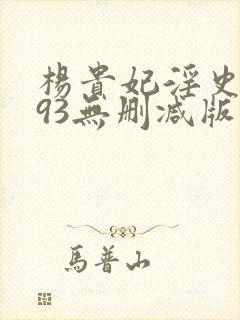 楊貴妃淫史
93無刪减版
馬普山